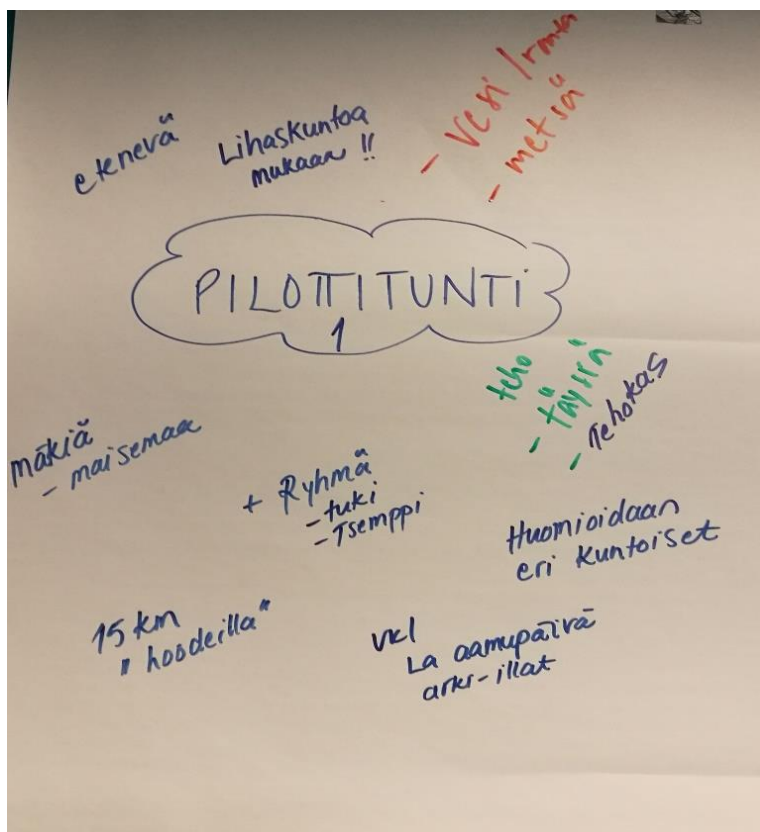 etenevä
Lihaskuntoa
mukaan !!
- Vesi / ranta
- metsä
PILOTTITUNTI
1
teho
- täyssä
- Tehokas
mäkiä
- maisemaa
+ Ryhmä
- tuki
- Tsemppi
Huomioidaan
eri kuntoiset
15 km
"hoodeilla"
vkl
La aamupäivä
arki-illat